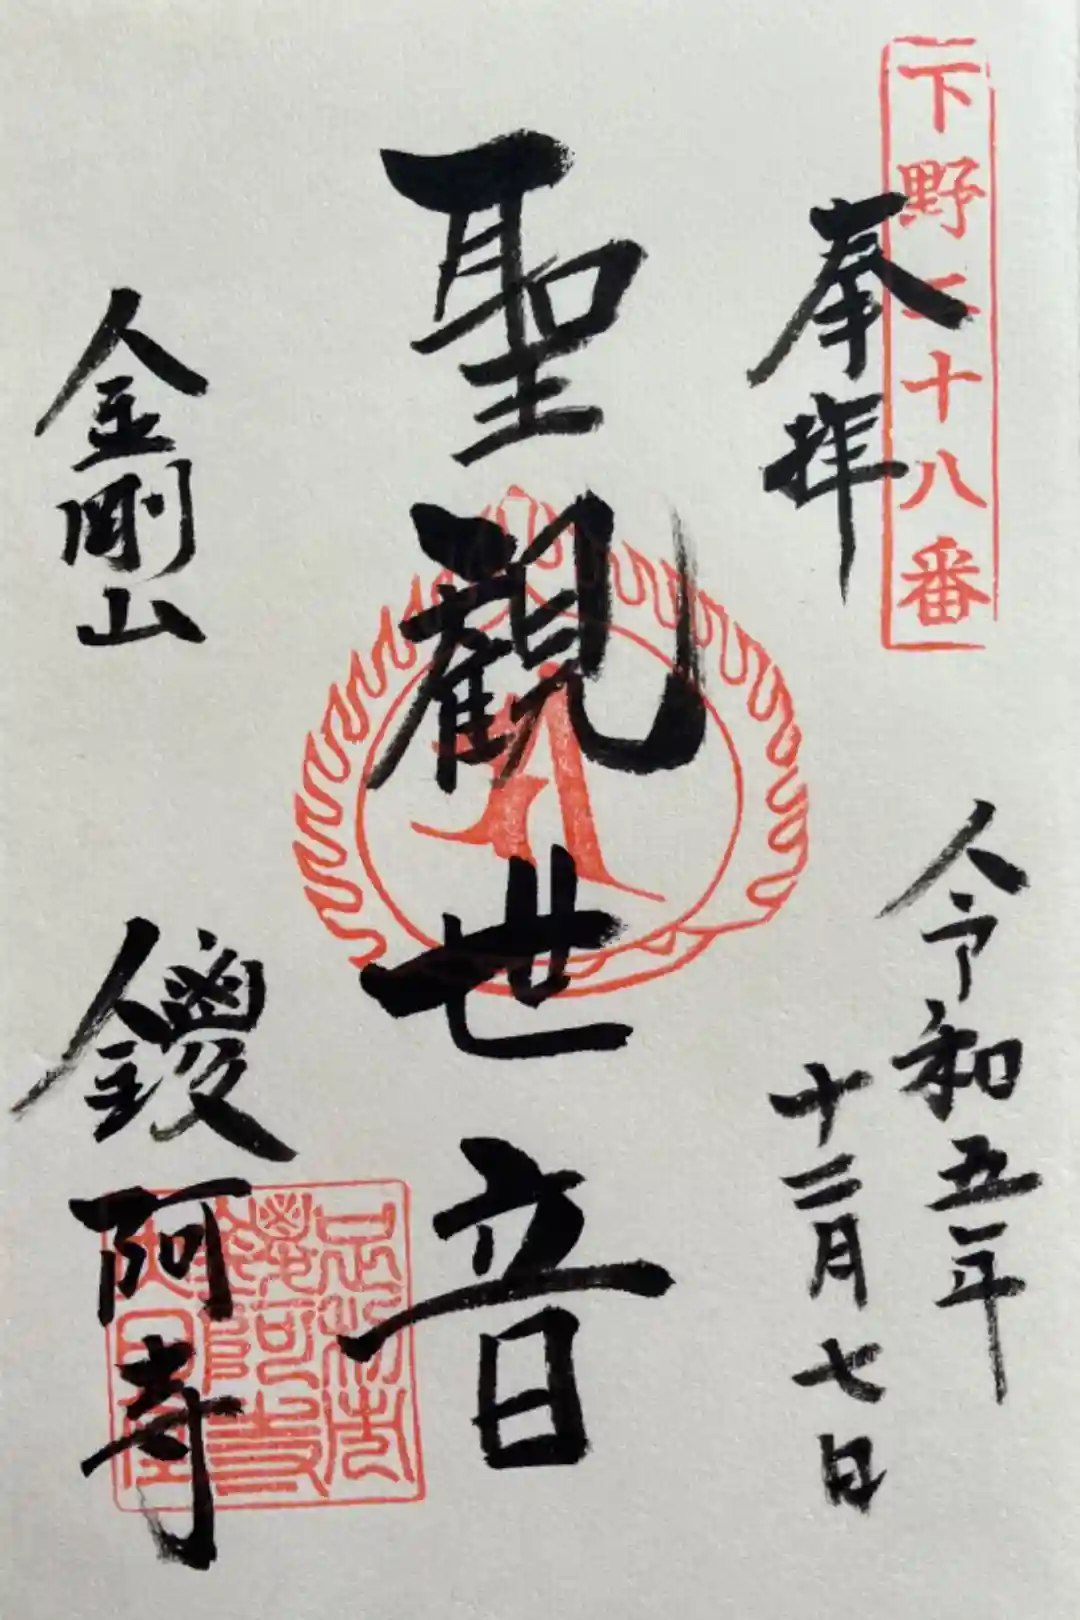 下野二十八番
奉拝
令和五年
十二月七日
聖觀世音
金剛山
鑁阿寺